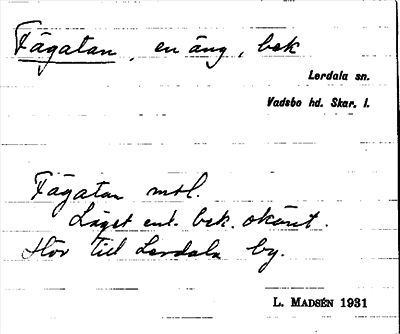 Fägatan, en äng, bek
Lerdala sn.
Vadsbo hd. Skar. l.
Fägatan msl.
Läget enl. bek. okänt.
Hör till Lerdala by.
L. MADSÉN 1931